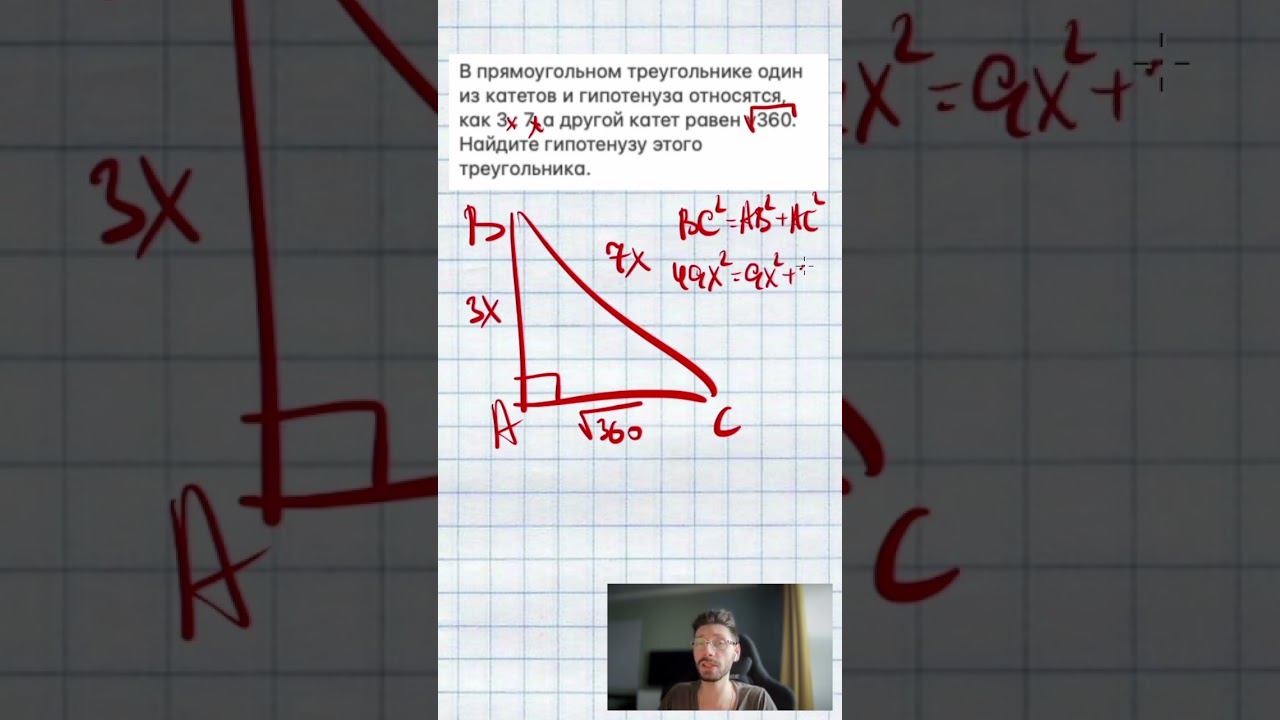 В прямоугольном треугольнике один
из катетов и гипотенуза относятся,
как 3x 7x, а другой катет равен √360.
Найдите гипотенузу этого
треугольника.
B
3x
7x
BC²=AB²+AC²
49x²=9x²+
A
√360
C
3x
A
x²=9x²+
C